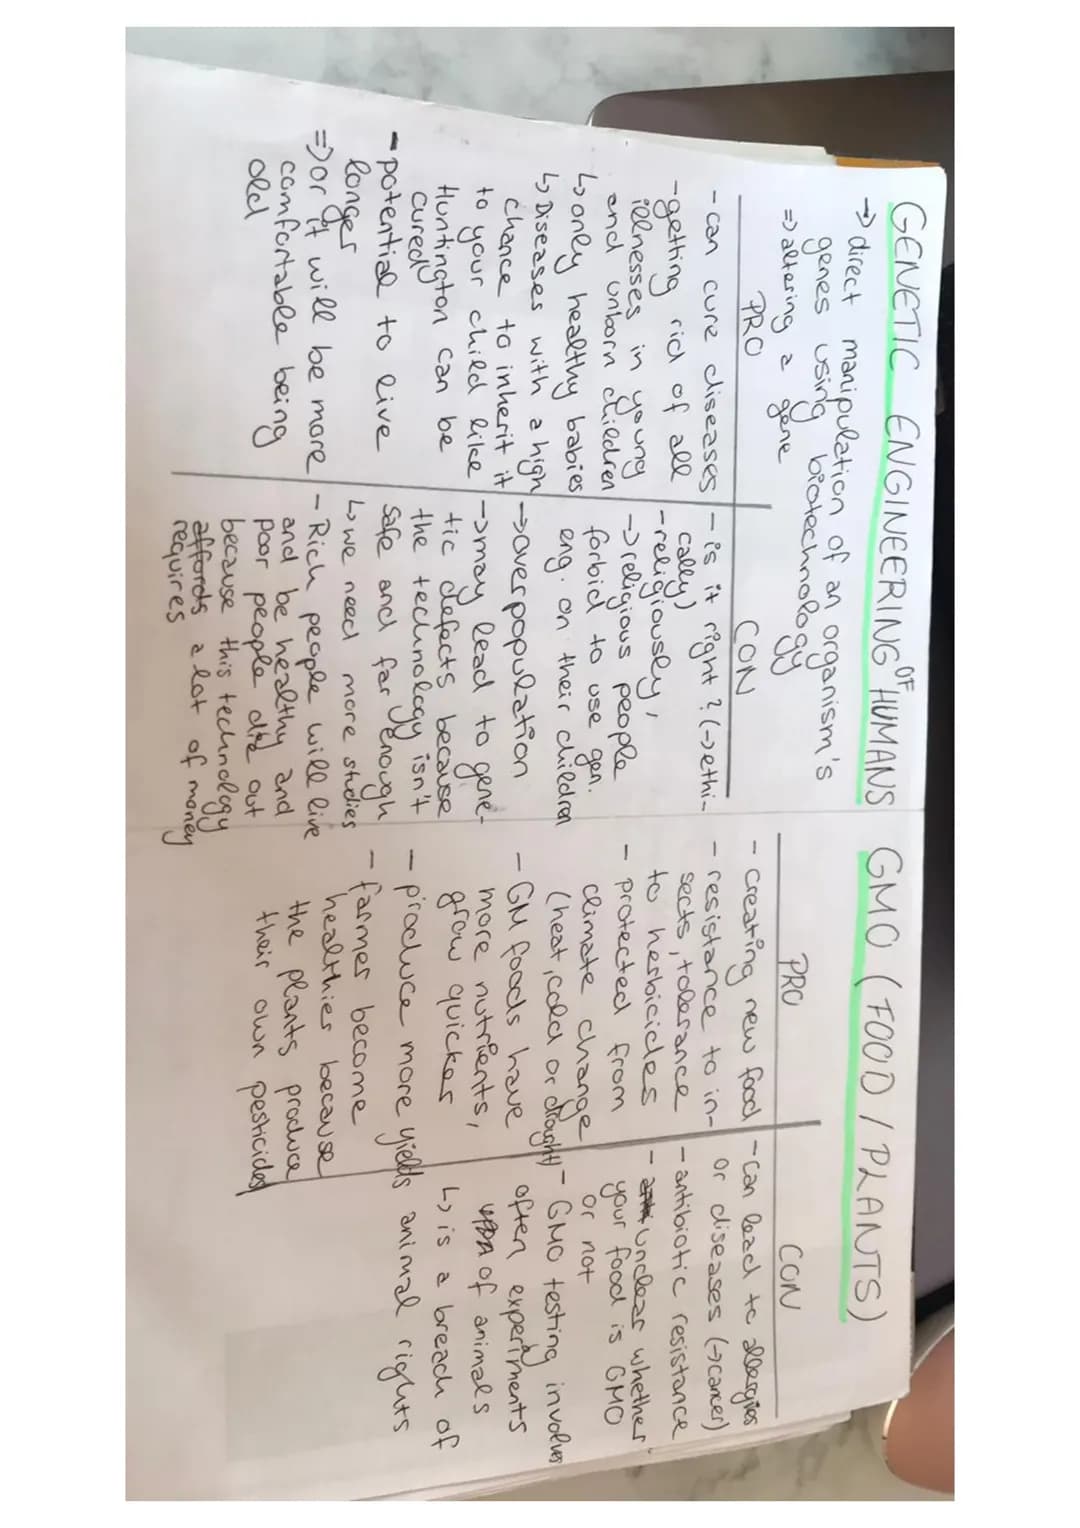 GENETIC ENGINEERING OF HUMANS
→ direct manipulation of an organism's
genes using biotechnology
=> altering a gene
PRO
- can cure diseases
- getting rid of all
illnesses in young
and unborn children
↳ only healthy babies
↳ Diseases with a high
chance to inherit it
to your child like
Huntington can be
cured
- potential to live
longer
=> or it will be more
comfortable being
old
CON
- is it right? (→ ethi-
cally)
- religiously,
→ religious people
forbid to use gen.
eng. on their children
→ overpopulation
→ may lead to gene-
tic defects because
the technology isn't
safe and far enough
↳ we need more studies
- Rich people will live
and be healthy and
poor people die out
because this technology
affords a lot of money
requires
GMO (FOOD / PLANTS)
PRO
- creating new food
- resistance to in-
sects, tolerance
to herbicides
- protected from
climate change
(heat, cold or drought)
- GM foods have
more nutrients,
grow quicker
- produce more yields
- farmer become
healthier because
the plants produce
their own pesticides
CON
- can lead to allergies
or diseases (→ cancer)
- antibiotic resistance
- unclear whether
your food is GMO
or not
- GMO testing involves
often experiments
of animals
↳ is a breach of
animal rights